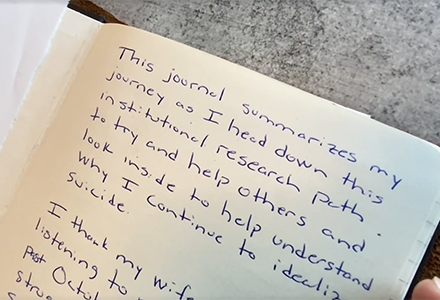 This journal summarizes my
journey as I head down this
institutional research path -
to try and help others and
look inside to help understand
why I continue to idealiz
suicide.
I thank my wife
listening to
past Octob